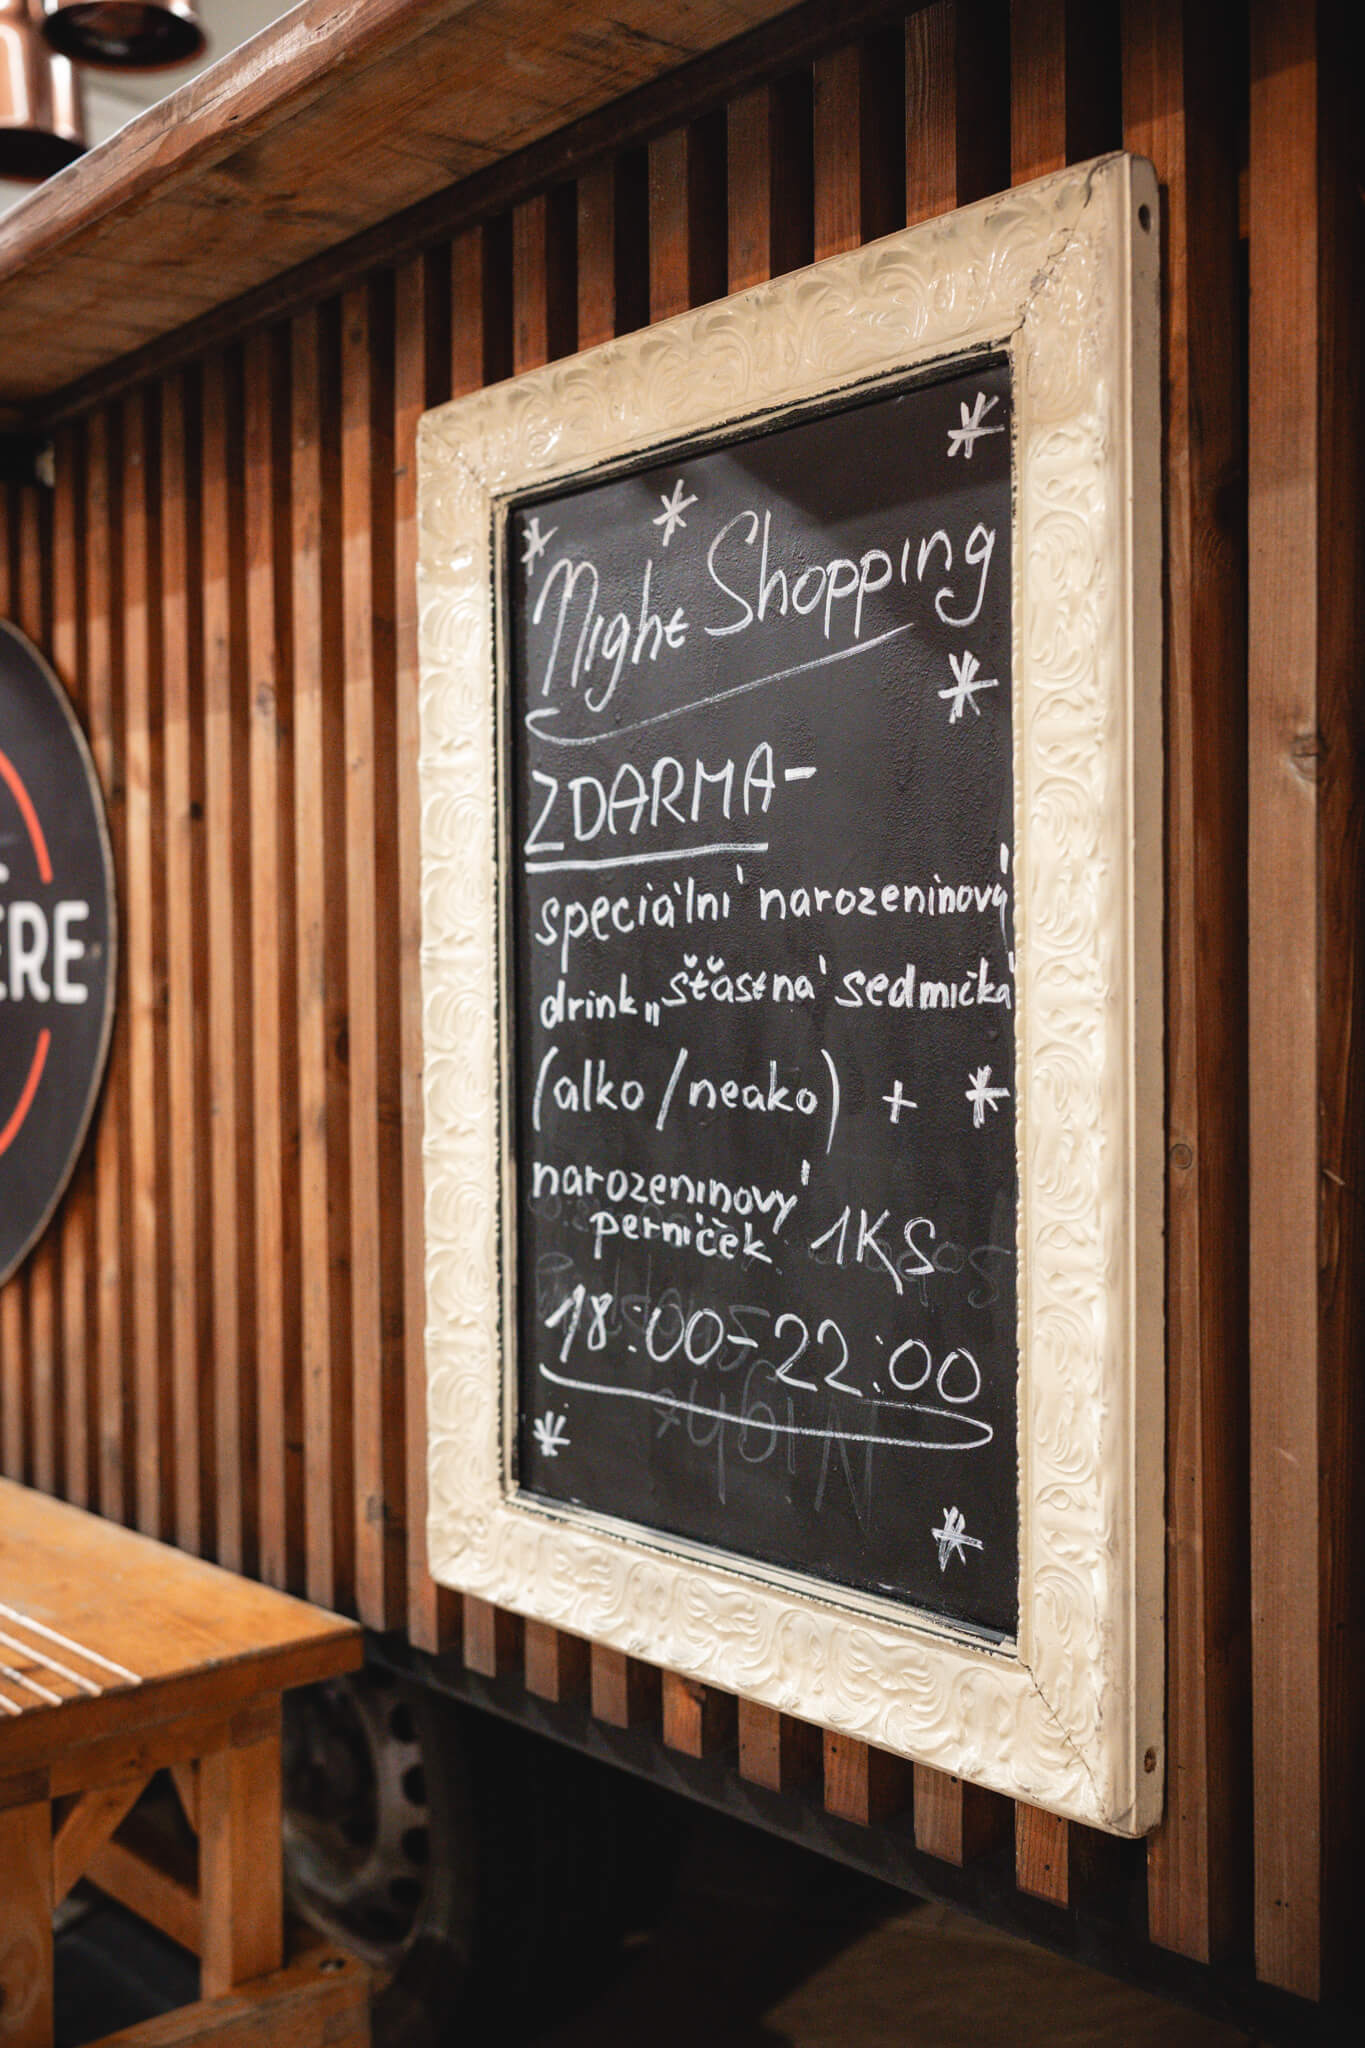 Night Shopping
ZDARMA-
speciální narozeninový
drink „šťastná sedmička
(alko/neako) +
narozeninový
perníček 1KS
18:00-22:00
ERE